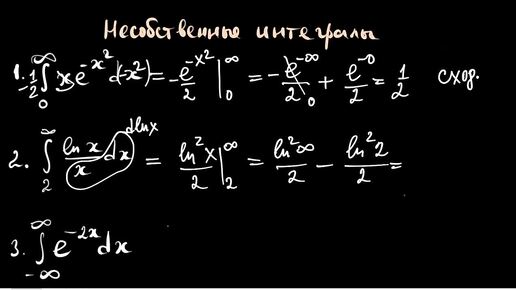 Несобственные интегралы
1. -1/2 ∫₀^∞ x e^(-x²) d(-x²) = -e^(-x²)/2 |₀^∞ = -e^(-∞)/2 ₀ + e^(-0)/2 = 1/2 сход.
2. ∫₂^∞ ln x/x dx dlnx = ln²x/2 |₂^∞ = ln²∞/2 - ln²2/2 =
3. ∫_(-∞)^∞ e^(-2x) dx